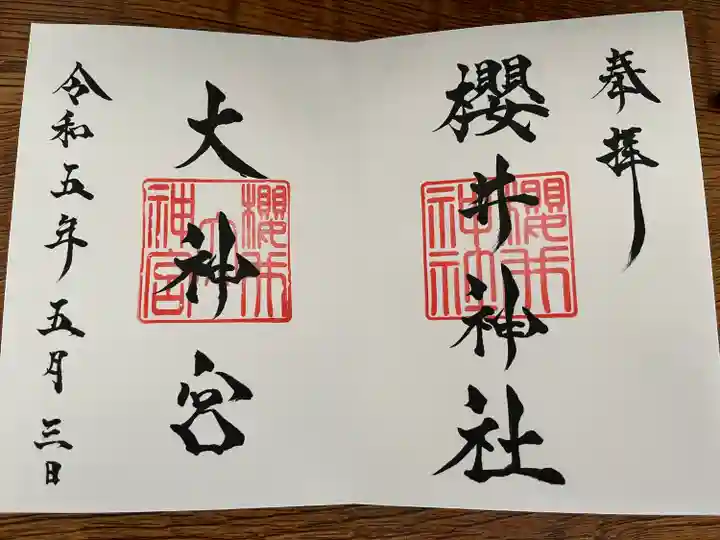 奉拝
櫻井神社
櫻井
神社
大神宮
櫻井
大
神宮
令和五年五月三日